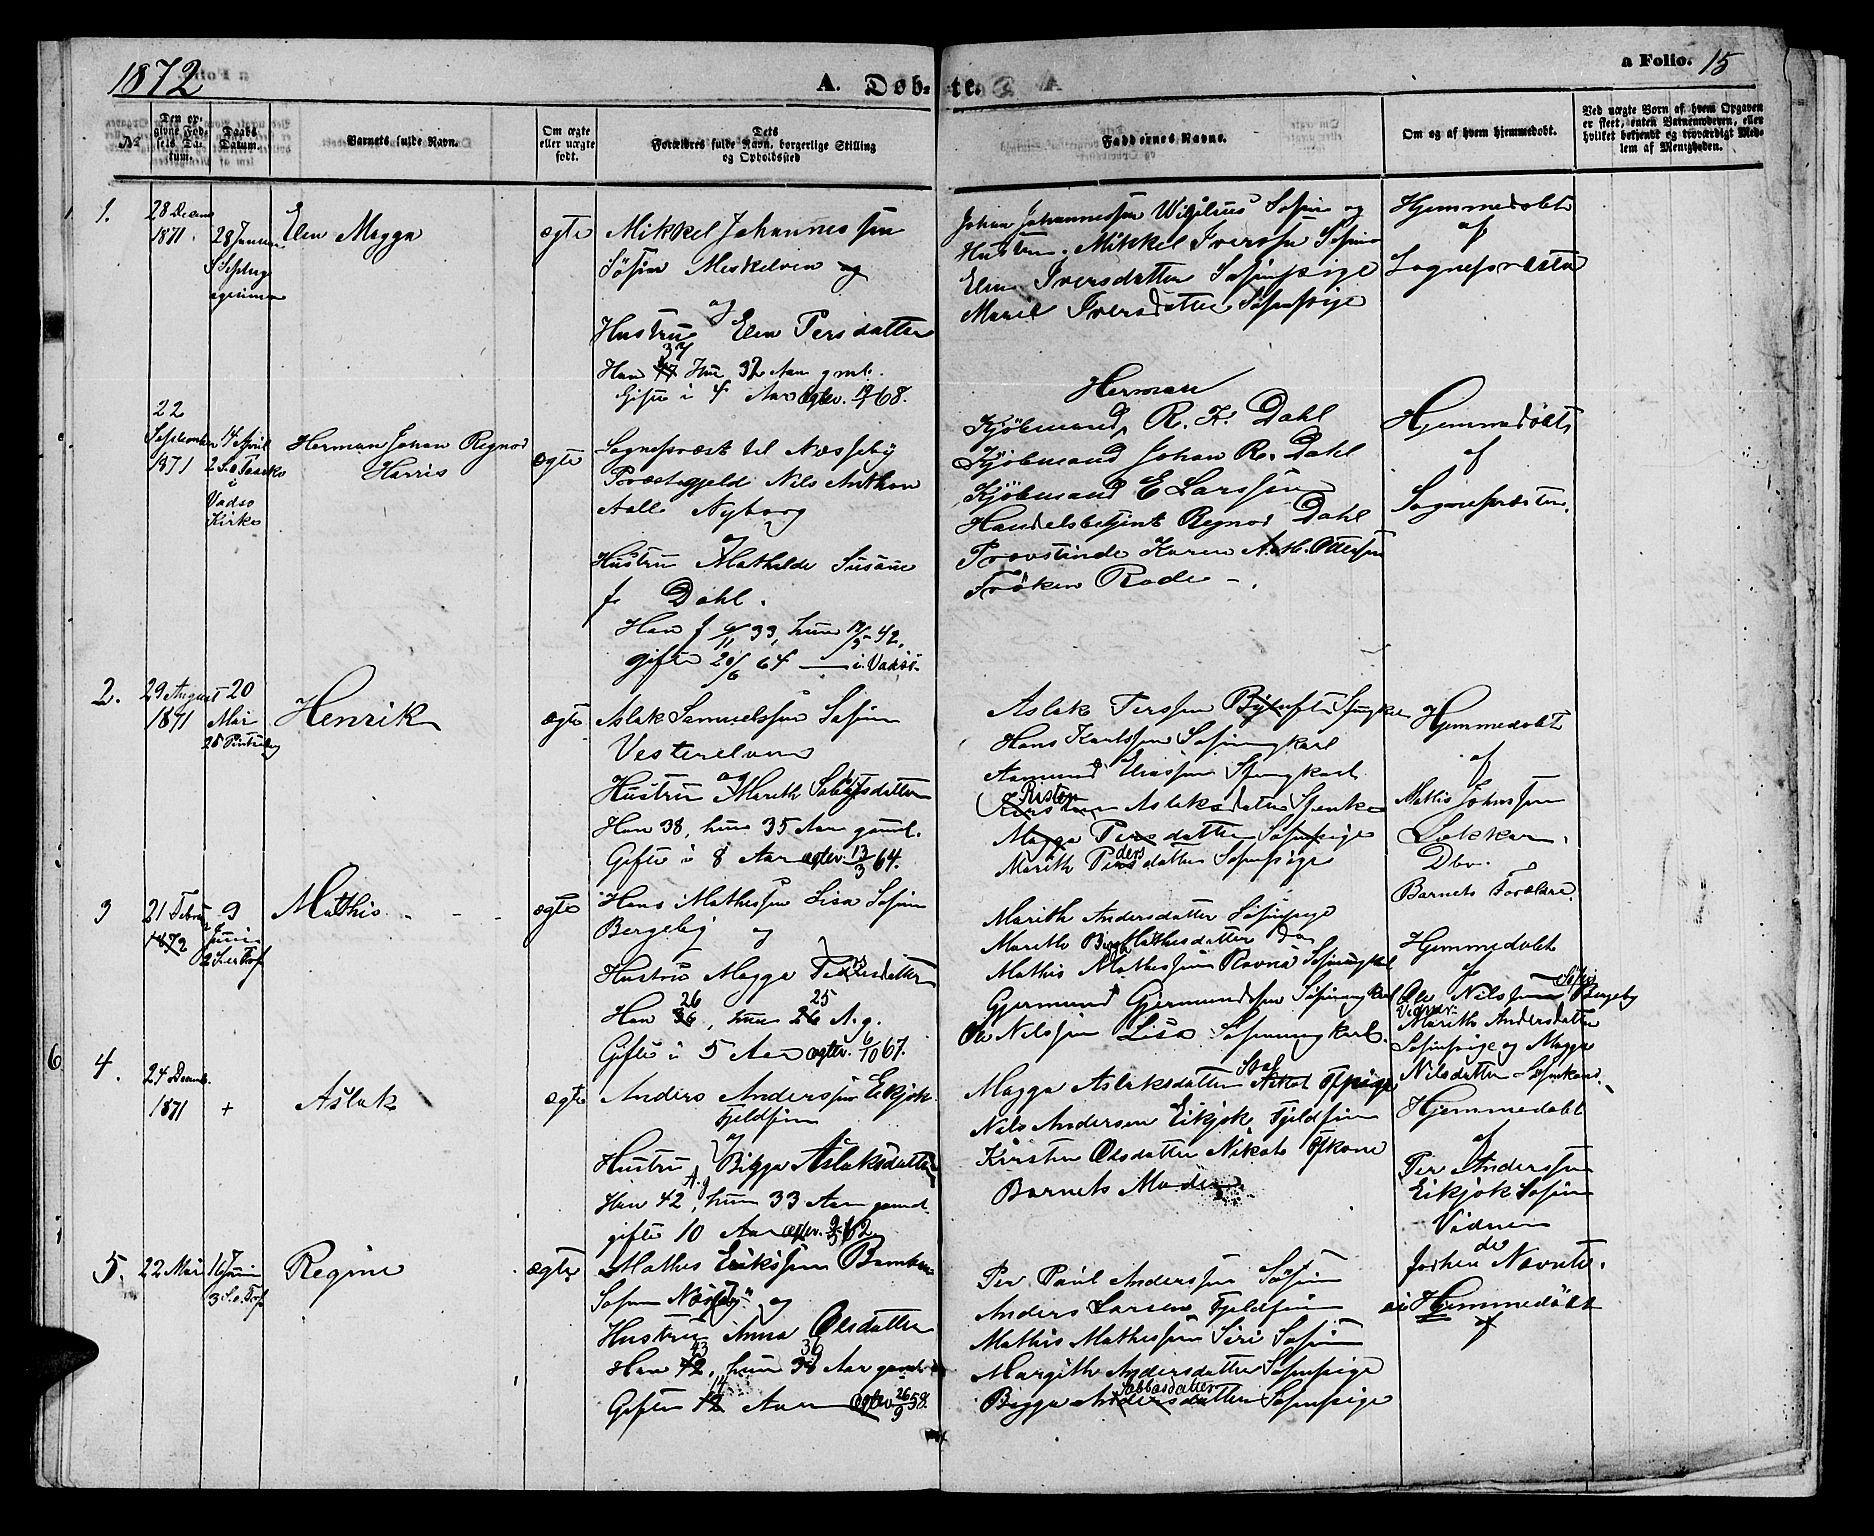 1872
A. Døb-
te.
a Folio. 15
No
Den op-
givne Fød-
sels Da-
tum.
Daabs
Datum.
Barnets fulde Navn.
Om ægte
eller uægte
født.
Dets
Forældres fulde Navn, borgerlige Stilling
og Opholdssted
Faddernes Navne.
Om og af hvem hjemmedøbt.
Ved uægte Børn af hvem Opgaven
er skeet, enten Barnemoderen, eller
hvilket bekjendt og troværdigt Med-
lem af Menigheden.
1.
28 Decem
1871.
28 Januar
S Septua
gesima
Elen Magga
ægte
Mikkel Johannessen
Søfin Meskelven og
og
Hustru Elen Persdatter
37
Han 47 Hun 32 Aar gml.
Gifte i 4 Aar ægtev. 68.
Johan Johannessen Wigelius Søfin og
Hustru, Mikkel Iversen Søfin
Elen Iversdatter Søfinpige
Marit Iversdatter Søfinpige
Hjemmedøbt
af
Sognepræsten
22
September
1871
14 April
2 S. e. Paaske
i
Vadsø
Kirke
Herman Johan Regnor
Harris
ægte
Sognepræst til Næsseby
Præstegjeld Nils Anthon
Aall Nyborg
og
Hustru Mathilde Susane
f. Dahl.
Han f 6/11 33, hun 17/5 42,
gifte 20/6 64 — i Vadsø.
Herman
Kjøbmand R. K. Dahl
Kjøbmand Johan R. Dahl
Kjøbmand E Larssen
Handelsbetjent Regnor Dahl
Provstinde Karen A. M. Ottersen
Frøken Rode -.
Hjemmedøbt
af
Sognepræsten.
2.
29 August
1871
20
Mai
2den Pintsedag
Henrik
ægte
Aslak Samuelssen Søfin
Vesterelven
og
Hustru Marith Sabasdatter
Han 38, hun 35 Aar gaml.
Gifte i 8 Aar ægtev. 13/3 64.
Aslak Perssen
Hans Karlssen Søfinungkarl
Aamund Eliassen Sfungkarl
Risten
Kirsten Aslaksdatter Sfenke
Magga Persdatter Søfinpige
ders
Marith Persdatter Søfinpige
Hjemmedøbt
af
Mathis Johnssen
Lakkar.
Dbv.
Barnets Forældre.
3
21 Februar
1872
9
Juni
2 S. e. Tref
Mathis - - -
ægte
Hans Mathessen Lisa Søfin
Bergeby og
Hustru Magga Pedersdatter
26 25
Han 36, hun 26 A. g.
Gifte i 5 Aar ægtev. 6/10 67.
Marith Andersdatter Søfinpige
Marith Bigga Mathesdatter do
Mathis Mathessen Ravna Søfinungkarl
Gjermund Gjermundssen Søfinungkarl
Ole Nilssen Lisa Søfinungkarl.
Hjemmedøbt
af
Søfin
Ole Nilssen Bergeby
Vidner:
Marith Andersdatter
Søfinpige og Magga
Nilsdatter Søfinkone.
4.
24 Decemb.
1871
+
Aslak
ægte
Anders Anderssen Eikjok
Fjeldfin
og
Hustru Bigga Aslaksdatter
A. g.
Han 42, hun 33 Aar gaml.
gifte 10 Aar ægtev. 62.
Magga Aslaksdatter Nikot Ffpige
Nils Andersen Eikjok Fjeldfin
Kirsten Olsdatter Nikot Ffkone
Barnets Moder
Hjemmedøbt
af
Per Anderssen
Eikjok Søfin
Vidner
de
forhen Nævnte.
5.
22 Mai
16 Juni
3 S. e. Tref
Regine
ægte
Mathis Erikssen Banken
Søfin Næsseby og
Hustru Anna Olsdatter
43 36
Han 42, hun 38 Aar gaml.
14
Gifte 12 Aar ægtev 26/9 58.
Per Paul Anderssen Søfin
Anders Larsen Fjeldfin
Mathis Mathessen Siri Søfin
Margith Andersdatter Søfinpige
Sabbasdatter
Bigga Andersdatter Søfinpige
ei Hjemmedøbt
6